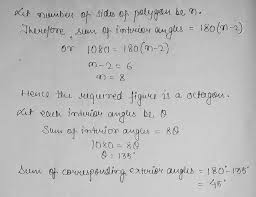 Let number of side of polygon be n.
Therefore, sum of interior angles = 180(n-2)
or 1080 = 180(n-2)
n-2 = 6
n = 8
Hence the required figure is a octagon.
Let each interior angles be θ
Sum of interior angles = 8θ
1080 = 8θ
θ = 135°
Sum of corresponding exterior angles = 180°-135°
= 45°